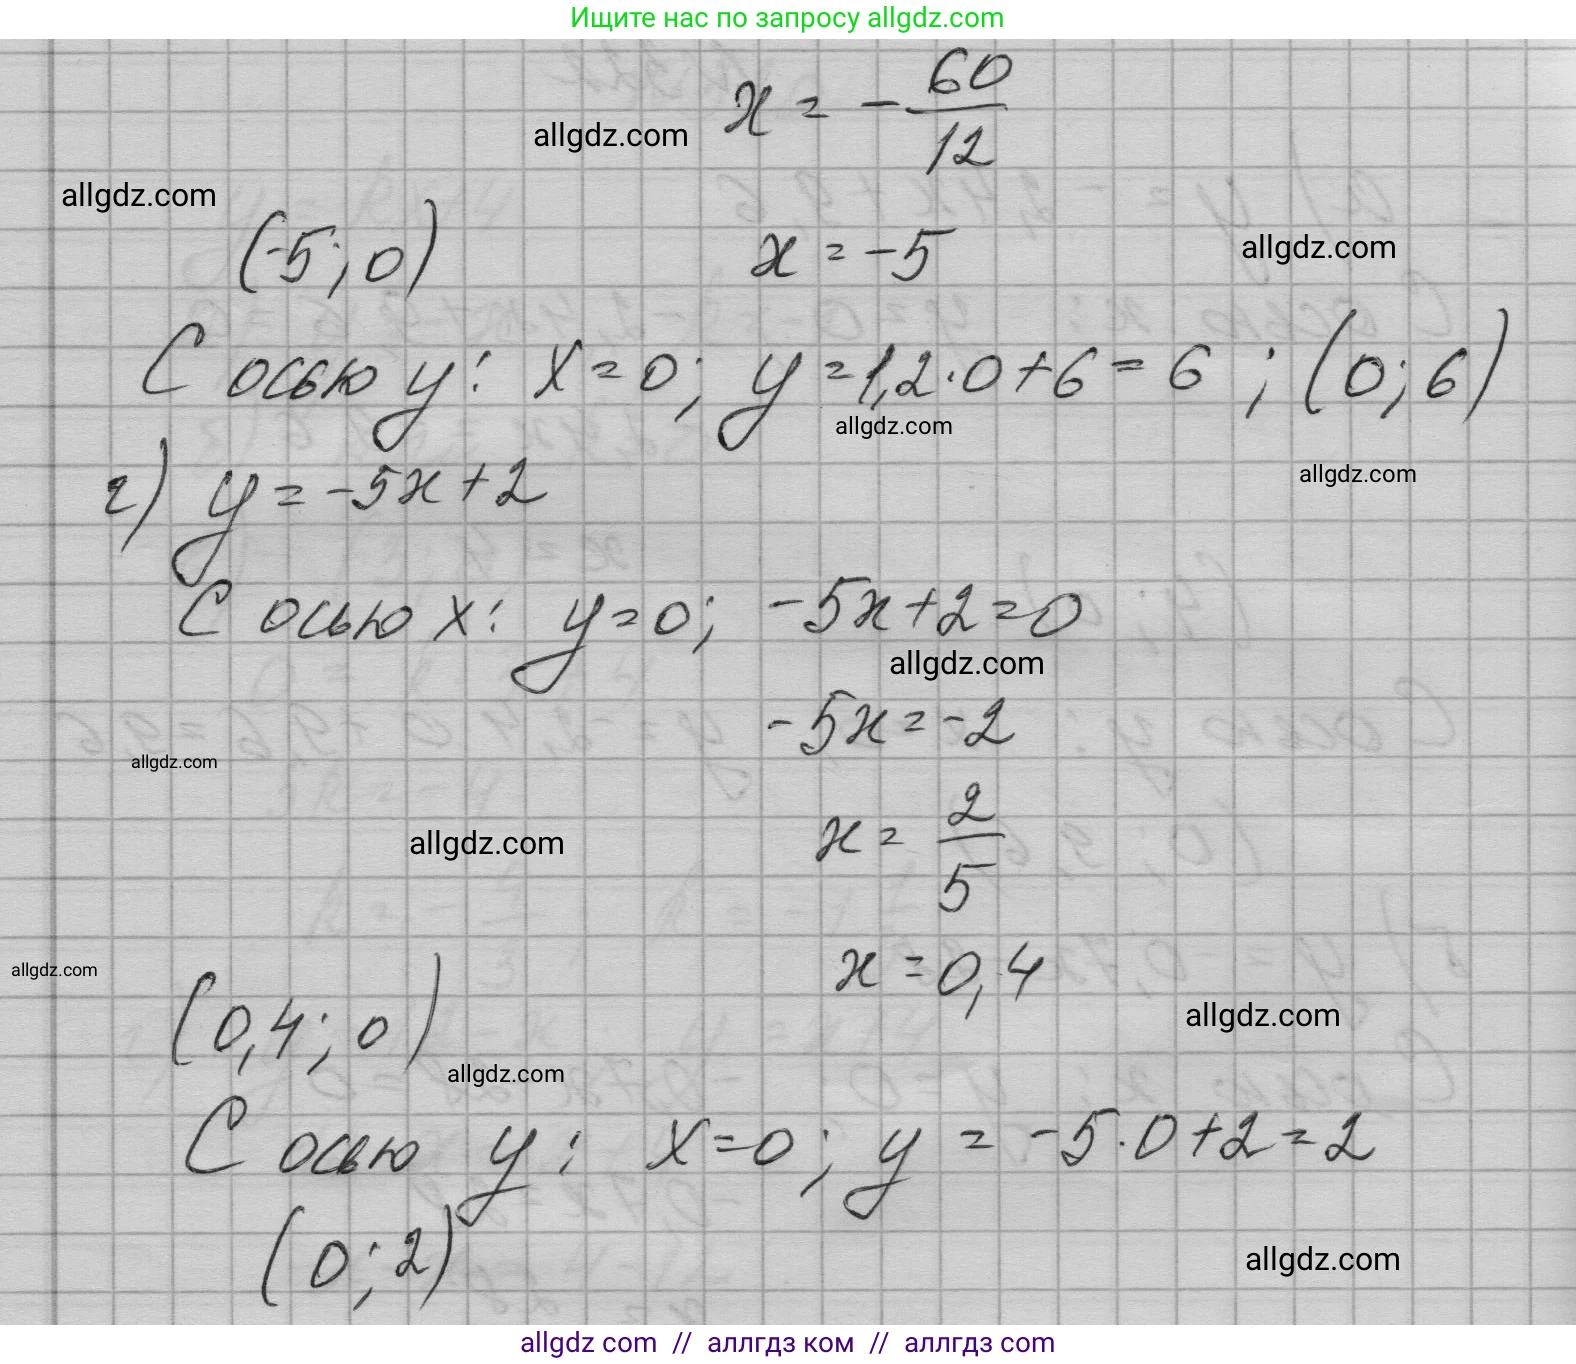 Ищите нас по запросу allgdz.com
x = - 60/12
allgdz.com
allgdz.com
(-5; 0) x = -5
allgdz.com
С осью y: x=0; y=1,2·0+6=6; (0; 6)
allgdz.com
allgdz.com
г) y=-5x+2
С осью x: y=0; -5x+2=0
allgdz.com
-5x=-2
allgdz.com
allgdz.com
x= 2/5
allgdz.com
x=0,4
(0,4; 0)
allgdz.com
allgdz.com
С осью y: x=0; y=-5·0+2=2
(0; 2)
allgdz.com
allgdz com // аллгдз ком // аллгдз com